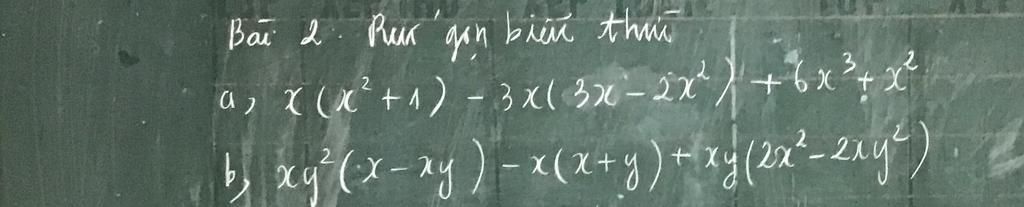 Bài 2. Rút gọn biểu thức
a, x(x² + 1) - 3x(3x - 2x²) + 6x³ + x²
b, xy²(x - xy) - x(x + y) + xy(2x² - 2xy²)